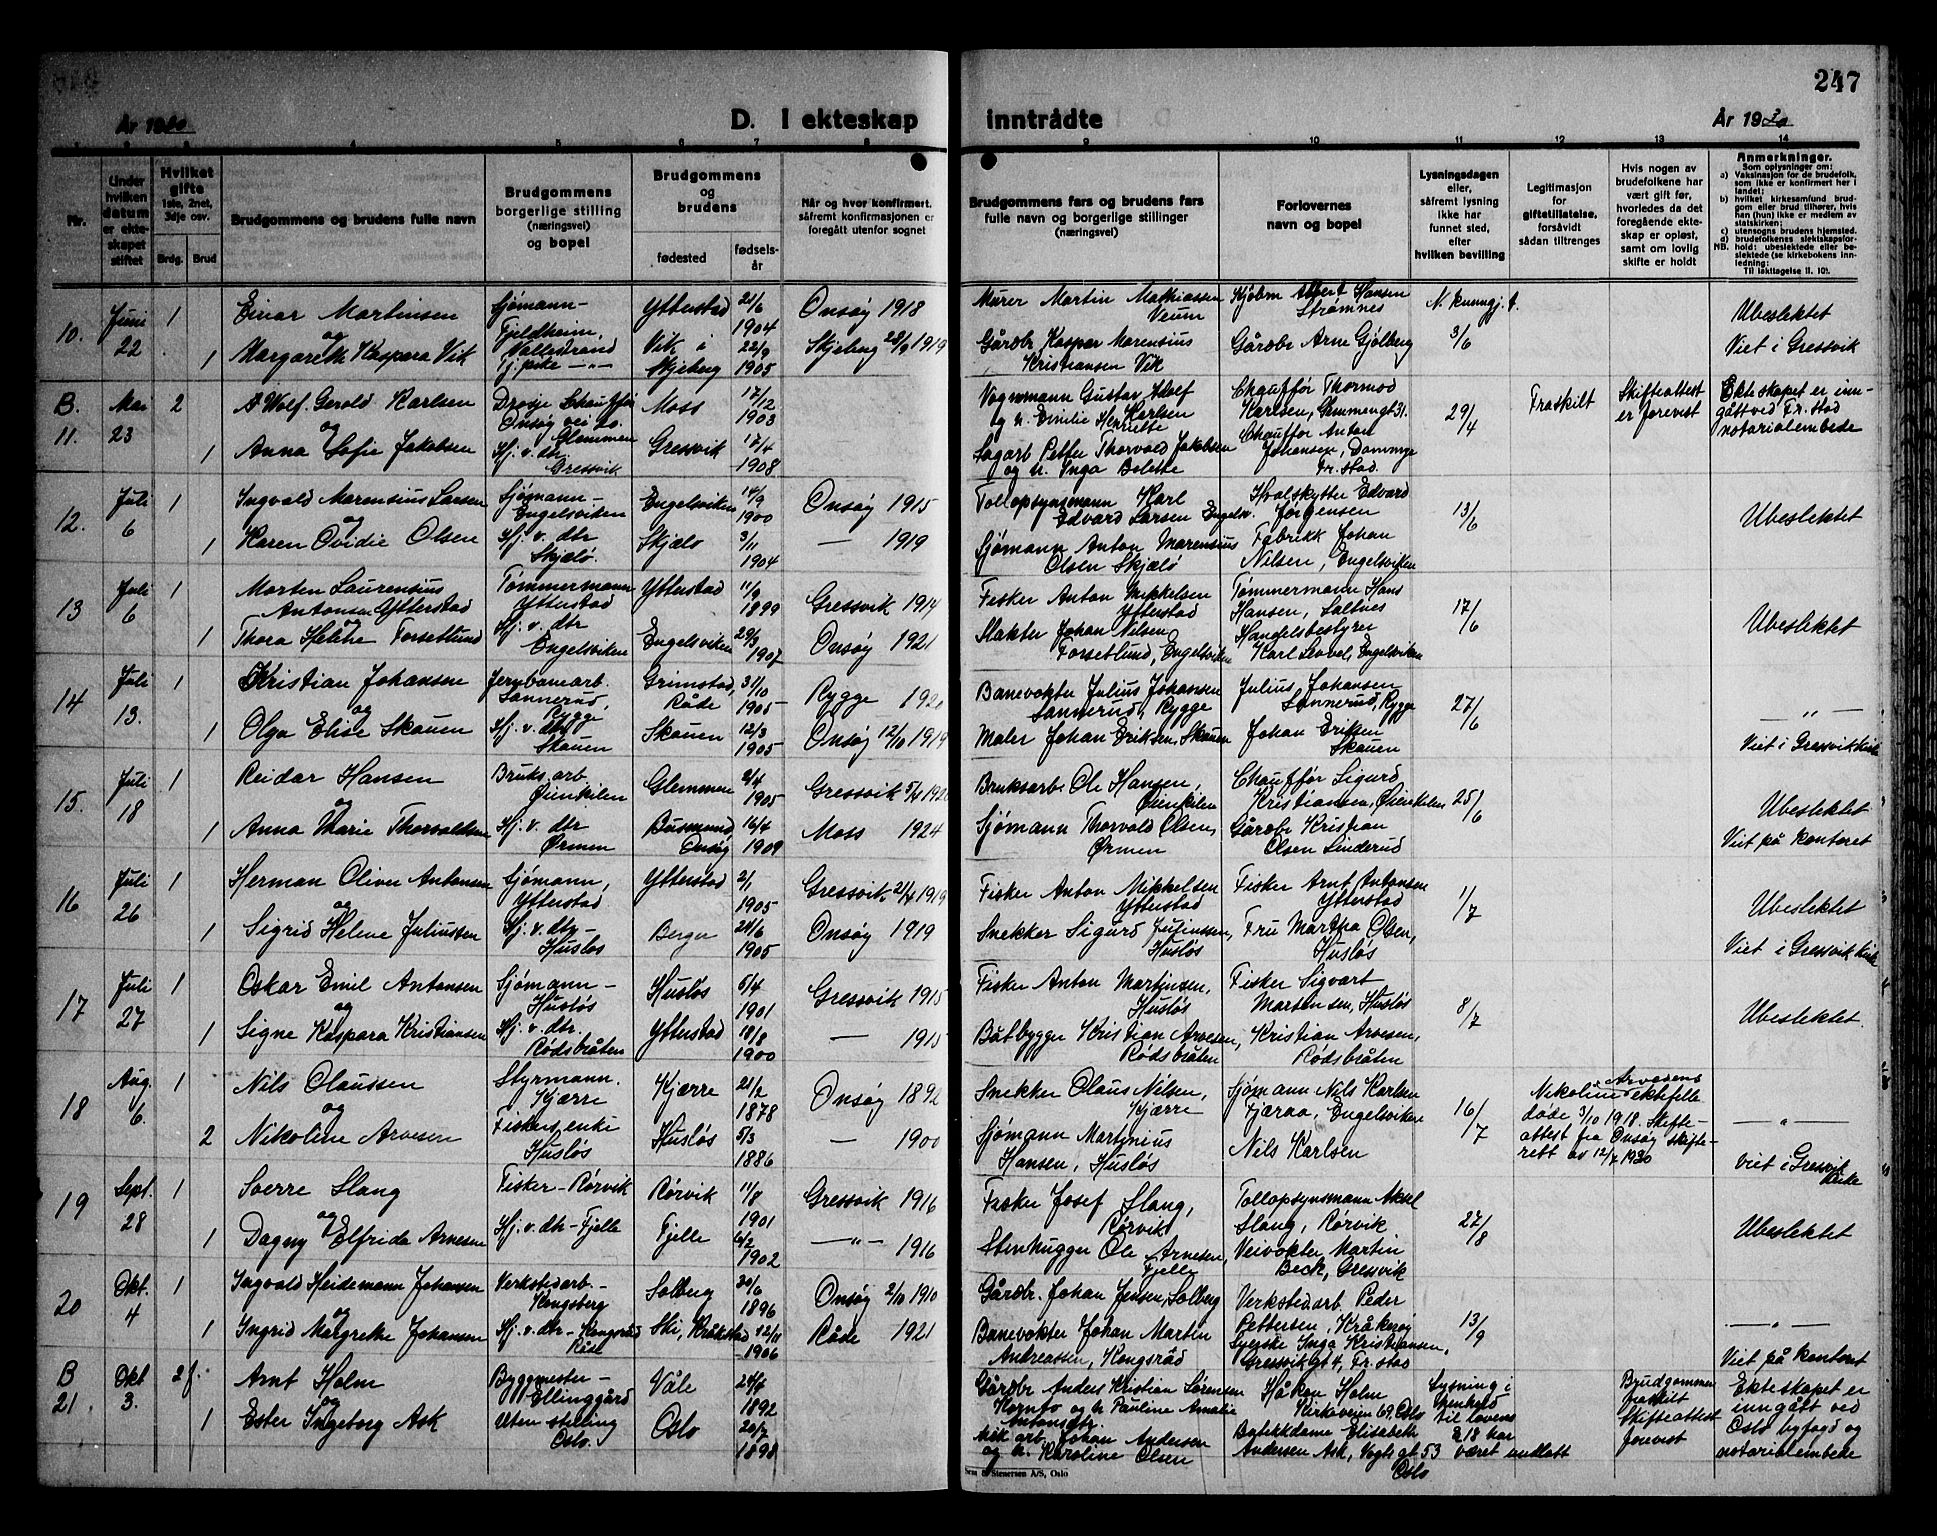 247
År 1930
D. I ekteskap inntrådte
År 1930
1 2 3 4 5 6 7 8 9 10 11 12 13 14
Nr.
Under hvilken datum er ekteskapet stiftet
Hvilket gifte 1ste, 2net, 3dje osv.
Brdg. Brud
Brudgommens og brudens fulle navn
Brudgommens borgerlige stilling (næringsvei) og bopel
Brudgommens og brudens
fødested
fødselsår
Når og hvor konfirmert. såfremt konfirmasjonen er foregått utenfor sognet
Brudgommens fars og brudens fars fulle navn og borgerlige stillinger (næringsvei)
Forlovernes navn og bopel
Lysningsdagen eller, såfremt lysning ikke har funnet sted, efter hvilken bevilling
Legitimasjon for giftetillatelse, forsåvidt sådan tiltrenges
Hvis nogen av brudefolkene har vært gift før, hvorledes da det foregående ekteskap er opløst, samt om lovlig skifte er holdt
Anmerkninger.
Som oplysninger om:
a) Vaksinasjon for de brudefolk, som ikke er konfirmert her i landet;
b) hvilket kirkesamfund brudgom eller brud tilhører, hvis han (hun) ikke er medlem av statskirken;
c) utensogns brudens hjemsted.
d) brudefolkenes slektskapsforhold: ubeslektede eller beslektede (se kirkebokens innledning:
NB. Til iakttagelse II. 10).
10. Juni 22 1 Einar Martinsen Sjømann - Fjeldheim, Ytterstad 21/6 1904 Onsøy 1918 Murer Martin Mathiassen Veum Albert Hansen Strømnes N. kunngj. f. 3/6 Ubeslektet
og
1 Margarethe Kaspara Vik Vallestrand Vik i Skjeberg 22/9 1905 Skjeberg 28/9 1919 Gårdbr Kasper Marensius Kristiansen Vik Gårdbr Arne Gjølberg Viet i Gressvik
B. 11. Mai 23 2 Gerold Karlsen Drosje Chauffør Onsøy vei Glemmen Moss 17/12 1903 Vognmann Gustav Adolf Karlsen og h. Emilie Henriette Chauffør Thormod Karlsen, Glemmengt 31. 29/4 Fraskilt Skifteattest er forevist Ekteskapet er inngått ved Fr. stad notarialembede
og
1 Anna Sofie Jakobsen Hj. v. dtr. Gressvik Gressvik 17/4 1908 Sagarb Petter Thorvald Jakobsen og h. Inga Bolette Chauffør Anton Johansen, Dammyr Fr. stad.
12. Juli 6 1 Ingvald Marensius Larsen Sjømann - Engelsviken Engelsviken 14/9 1900 Onsøy 1915 Tollopsynsmann Karl Edvard Larsen Engelsv. Hvalskytter Edvard Jørgensen 13/6 Ubeslektet
og
1 Karen Ovidie Olsen Hj. v. dtr Skjælø. Skjælø 3/11 1904 — 1919 Sjømann Anton Marensius Olsen Skjælø Fabrikk Johan Nilsen, Engelsviken
13 Juli 6 1 Morten Laurensius Antonsen Ytterstad Tømmermann Ytterstad Ytterstad 11/9 1899 Gressvik 1914 Fisker Anton Mikkelsen Ytterstad Tømmermann Hans Hansen, Saltnes 17/6 Ubeslektet
og
1 Thora Helene Forsetlund Hj. v. dtr Engelsviken Engelsviken 29/3 1907 Onsøy 1921 Slakter Johan Nilsen Forsetlund, Engelsviken Handelsbestyrer Karl Engelsviken
14 Juli 13. 1 Kristian Johansen Jernbanearb. Sannerud, Rygge Grimstad, Råde 31/10 1905 Rygge Banevokter Julius Johansen Sannerud, Rygge Julius Johansen Sannerud, Rygge 27/6 — „ —
og
1 Olga Elise Skauen Hj. v. dtr Skauen Skauen 12/3 1905 Onsøy 12/10 1919 Maler Johan Eriksen, Skauen Johan Eriksen Skauen Viet i Gressvik kirke
15. Juli 18 1 Reidar Hansen Bruksarb. Øienkilen Glemmen 2/4 1905 Gressvik Bruksarb. Ole Hansen, Øienkilen Chauffør Sigurd Kristiansen, Øienkilen 25/6 Ubeslektet
og
1 Anna Marie Thorvaldsen Hj. v. dtr Ørmen Onsøy 16/4 1909 Moss 1924 Sjømann Thorvald Olsen, Ørmen Gårdbr Kristian Olsen Linderud Viet på kontoret
16 Juli 26 1 Herman Oliver Antonsen Sjømann, Ytterstad Ytterstad 2/1 1905 Gressvik 21/4 1919 Fisker Anton Mikkelsen Ytterstad Fisker Arnt Antonsen Ytterstad 1/7 Ubeslektet
og
1 Sigrid Helene Juliussen Hj. v. dtr - Husløs Berger 24/6 1905 Onsøy 1919 Snekker Sigurd Juliussen, Husløs Fru Martha Olsen, Husløs Viet i Gressvik kirke
17 Juli 27 1 Oskar Emil Antonsen Sjømann - Husløs Husløs 5/4 1901 Gressvik 1915 Fisker Anton Martinsen, Husløs Fisker Sigvart Martinsen, Husløs 8/7 Ubeslektet.
og
1 Signe Kaspara Kristiansen Hj. v. dtr. Rødsbråten Ytterstad 18/8 1900 — 1915 Båtbygger Kristian Arvesen, Rødsbråten Kristian Arvesen, Rødsbråten
18 Aug. 6. 1 Nils Claussen Styrmann. Kjærre Kjærre 21/2 1878 Onsøy 1892 Snekker Claus Nilsen, Kjærre Sjømann Nils Karlsen Fjæraa, Engelsviken 16/7 Nikoline Arvesens ektefelle døde 3/10 1918. Skifteattest fra Onsøy skifterett av 12/7 1930 — „ —
og
2 Nikoline Arvesen Fiskers enke Husløs Husløs 5/3 1886 — 1900 Sjømann Martinius Hansen, Husløs Nils Karlsen viet i Gressvik kirke
19 Sept. 28 1 Sverre Slang Fisker - Rørvik Rørvik 11/8 1901 Gressvik 1916 Fisker Josef Slang, Rørvik Tollopsynsmann Aksel Slang, Rørvik 27/8 Ubeslektet
og
1 Dagny Elfrida Arnesen Hj. v. dtr - Fjelle Fjelle 6/2 1902 — „ — 1916 Stenhugger Ole Arnesen, Fjelle Veivokter Martin Beck, Gressvik
20 Okt. 4 1 Ingvald Heidemann Johansen Verkstedarb. - Kongsberg Solberg 20/6 1896 Onsøy 2/10 1910 Gårdbr. Johan Jensen, Solberg Verkstedarb Peder Pettersen, Kråkerøy 13/9 — „ —
og
1 Ingrid Margrethe Johansen Hj. v. dtr - Kongsrød Råde Ski, Kråkstad 12/11 1906 Råde 1921 Banevokter Johan Martin Andreassen, Kongsrød Syerske Inga Kristiansen, Gressvikgt 4, Fr. stad Viet på kontoret
B 21. Okt 3. 2 f. Arnt Holm Byggmester - Ellinggård Våle 24/4 1892 Gårdbr Anders Kristian Sørensen og h Pauline Amalie Antonsdtr. Håkon Holm Kirkeveien 69, Oslo Lysning i henhold til lovens § 18 har været undlatt Brudgommen fraskilt Skifteattest forevist Ekteskapet er inngått ved Oslo byfogd og notarialembede
og
1 Ester Ingeborg Ask Uten stilling Oslo. Oslo 20/7 1898 arb. Johan Andersen og h. Karoline Olsen Butikkdame Elisabeth Andersen Ask, Vogts gt 53 Oslo
Sem & Stenersen A/S, Oslo